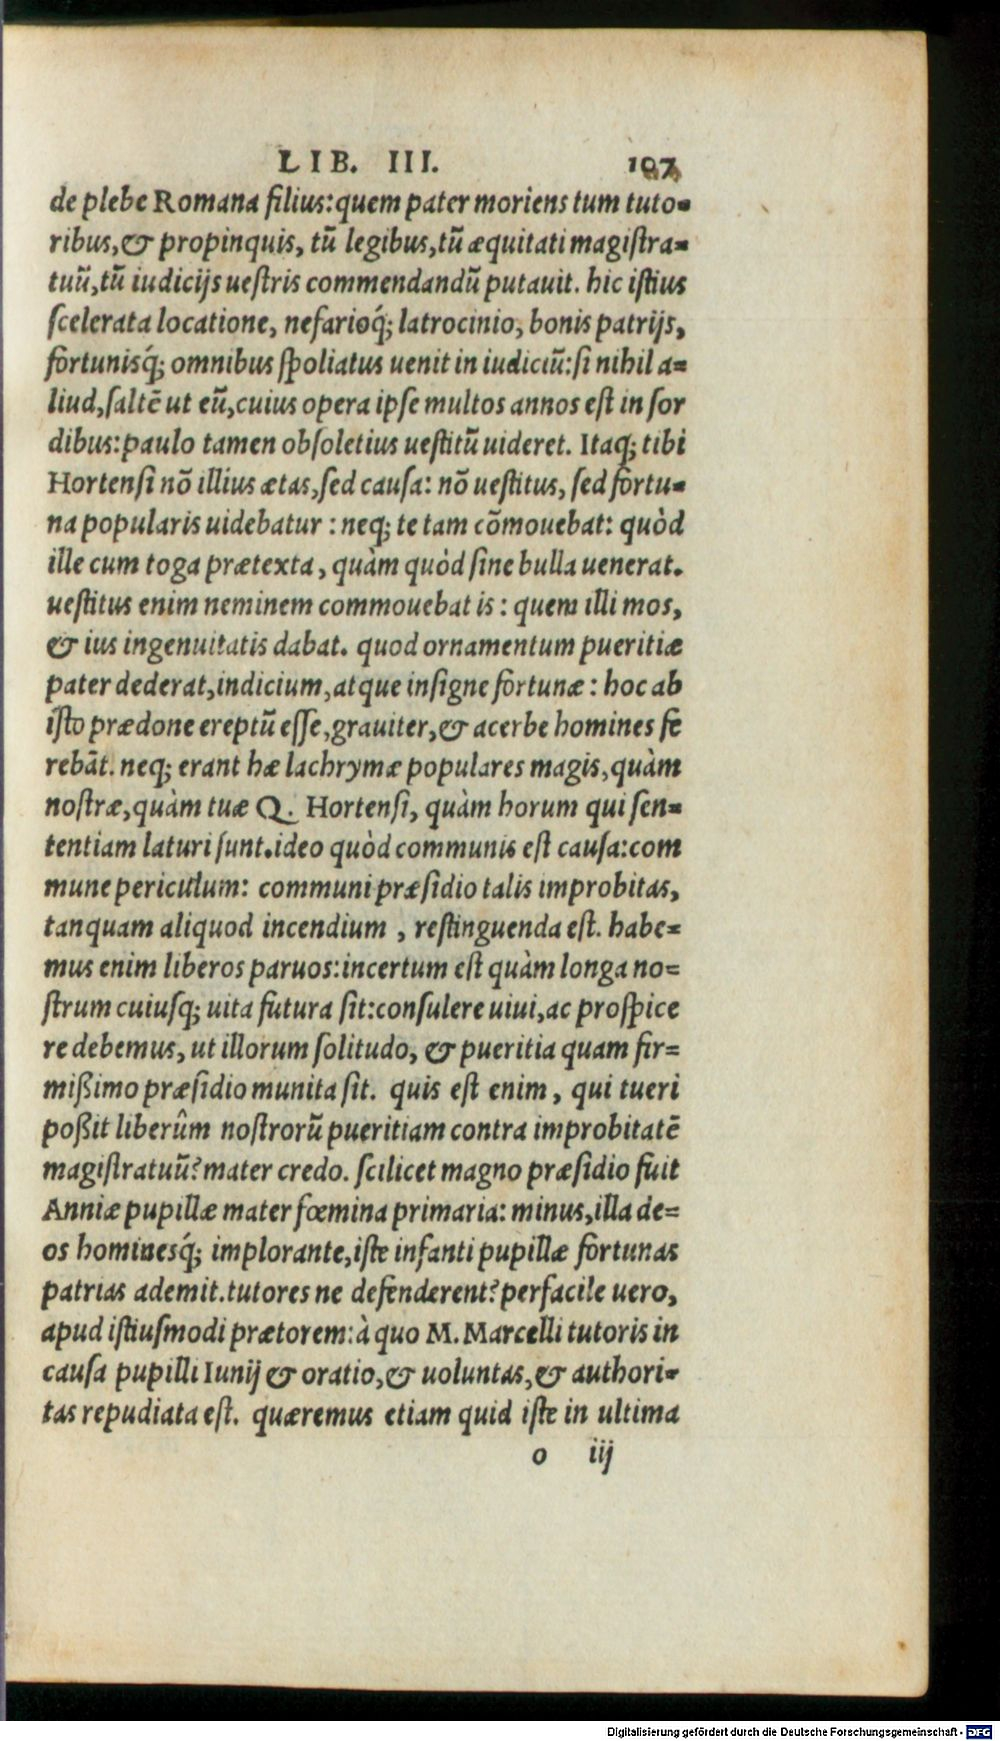 LIB. III. 107
de plebe Romana filius: quem pater moriens tum tuto-
ribus, & propinquis, tũ legibus, tũ æquitati magiſtra-
tuũ, tũ iudicijs ueſtris commendandũ putauit. hic iſtius
ſcelerata locatione, nefarioq́; latrocinio, bonis patrijs,
fortunisq́; omnibus ſpoliatus uenit in iudiciũ: ſi nihil a-
liud, ſaltẽ ut eũ, cuius opera ipſe multos annos eſt in ſor
dibus: paulo tamen obſoletius ueſtitũ uideret. Itaq; tibi
Hortenſi nõ illius ætas, ſed cauſa: nõ ueſtitus, ſed fortu-
na popularis uidebatur : neq; te tam cõmouebat: quòd
ille cum toga prætexta, quàm quòd ſine bulla uenerat.
ueſtitus enim neminem commouebat is : quem illi mos,
& ius ingenuitatis dabat. quod ornamentum pueritiæ
pater dederat, indicium, atque inſigne fortunæ : hoc ab
iſto prædone ereptũ eſſe, grauiter, & acerbe homines fe
rebãt. neq; erant hæ lachrymæ populares magis, quàm
noſtræ, quàm tuæ Q. Hortenſi, quàm horum qui ſen-
tentiam laturi ſunt. ideo quòd communis eſt cauſa: com
mune periculum: communi præſidio talis improbitas,
tanquam aliquod incendium , reſtinguenda eſt. habe-
mus enim liberos paruos: incertum eſt quàm longa no-
ſtrum cuiuſq; uita futura ſit: conſulere uiui, ac proſpice
re debemus, ut illorum ſolitudo, & pueritia quam fir-
mißimo præſidio munita ſit. quis eſt enim, qui tueri
poßit liberûm noſtrorũ pueritiam contra improbitatẽ
magiſtratuũ? mater credo. ſcilicet magno præſidio fuit
Anniæ pupillæ mater fœmina primaria: minus, illa de-
os hominesq́; implorante, iſte infanti pupillæ fortunas
patrias ademit. tutores ne defenderent? perfacile uero,
apud iſtiuſmodi prætorem: à quo M. Marcelli tutoris in
cauſa pupilli Iunij & oratio, & uoluntas, & authori-
tas repudiata eſt. quæremus etiam quid iſte in ultima
o iij
Digitalisierung gefördert durch die Deutsche Forschungsgemeinschaft - DFG